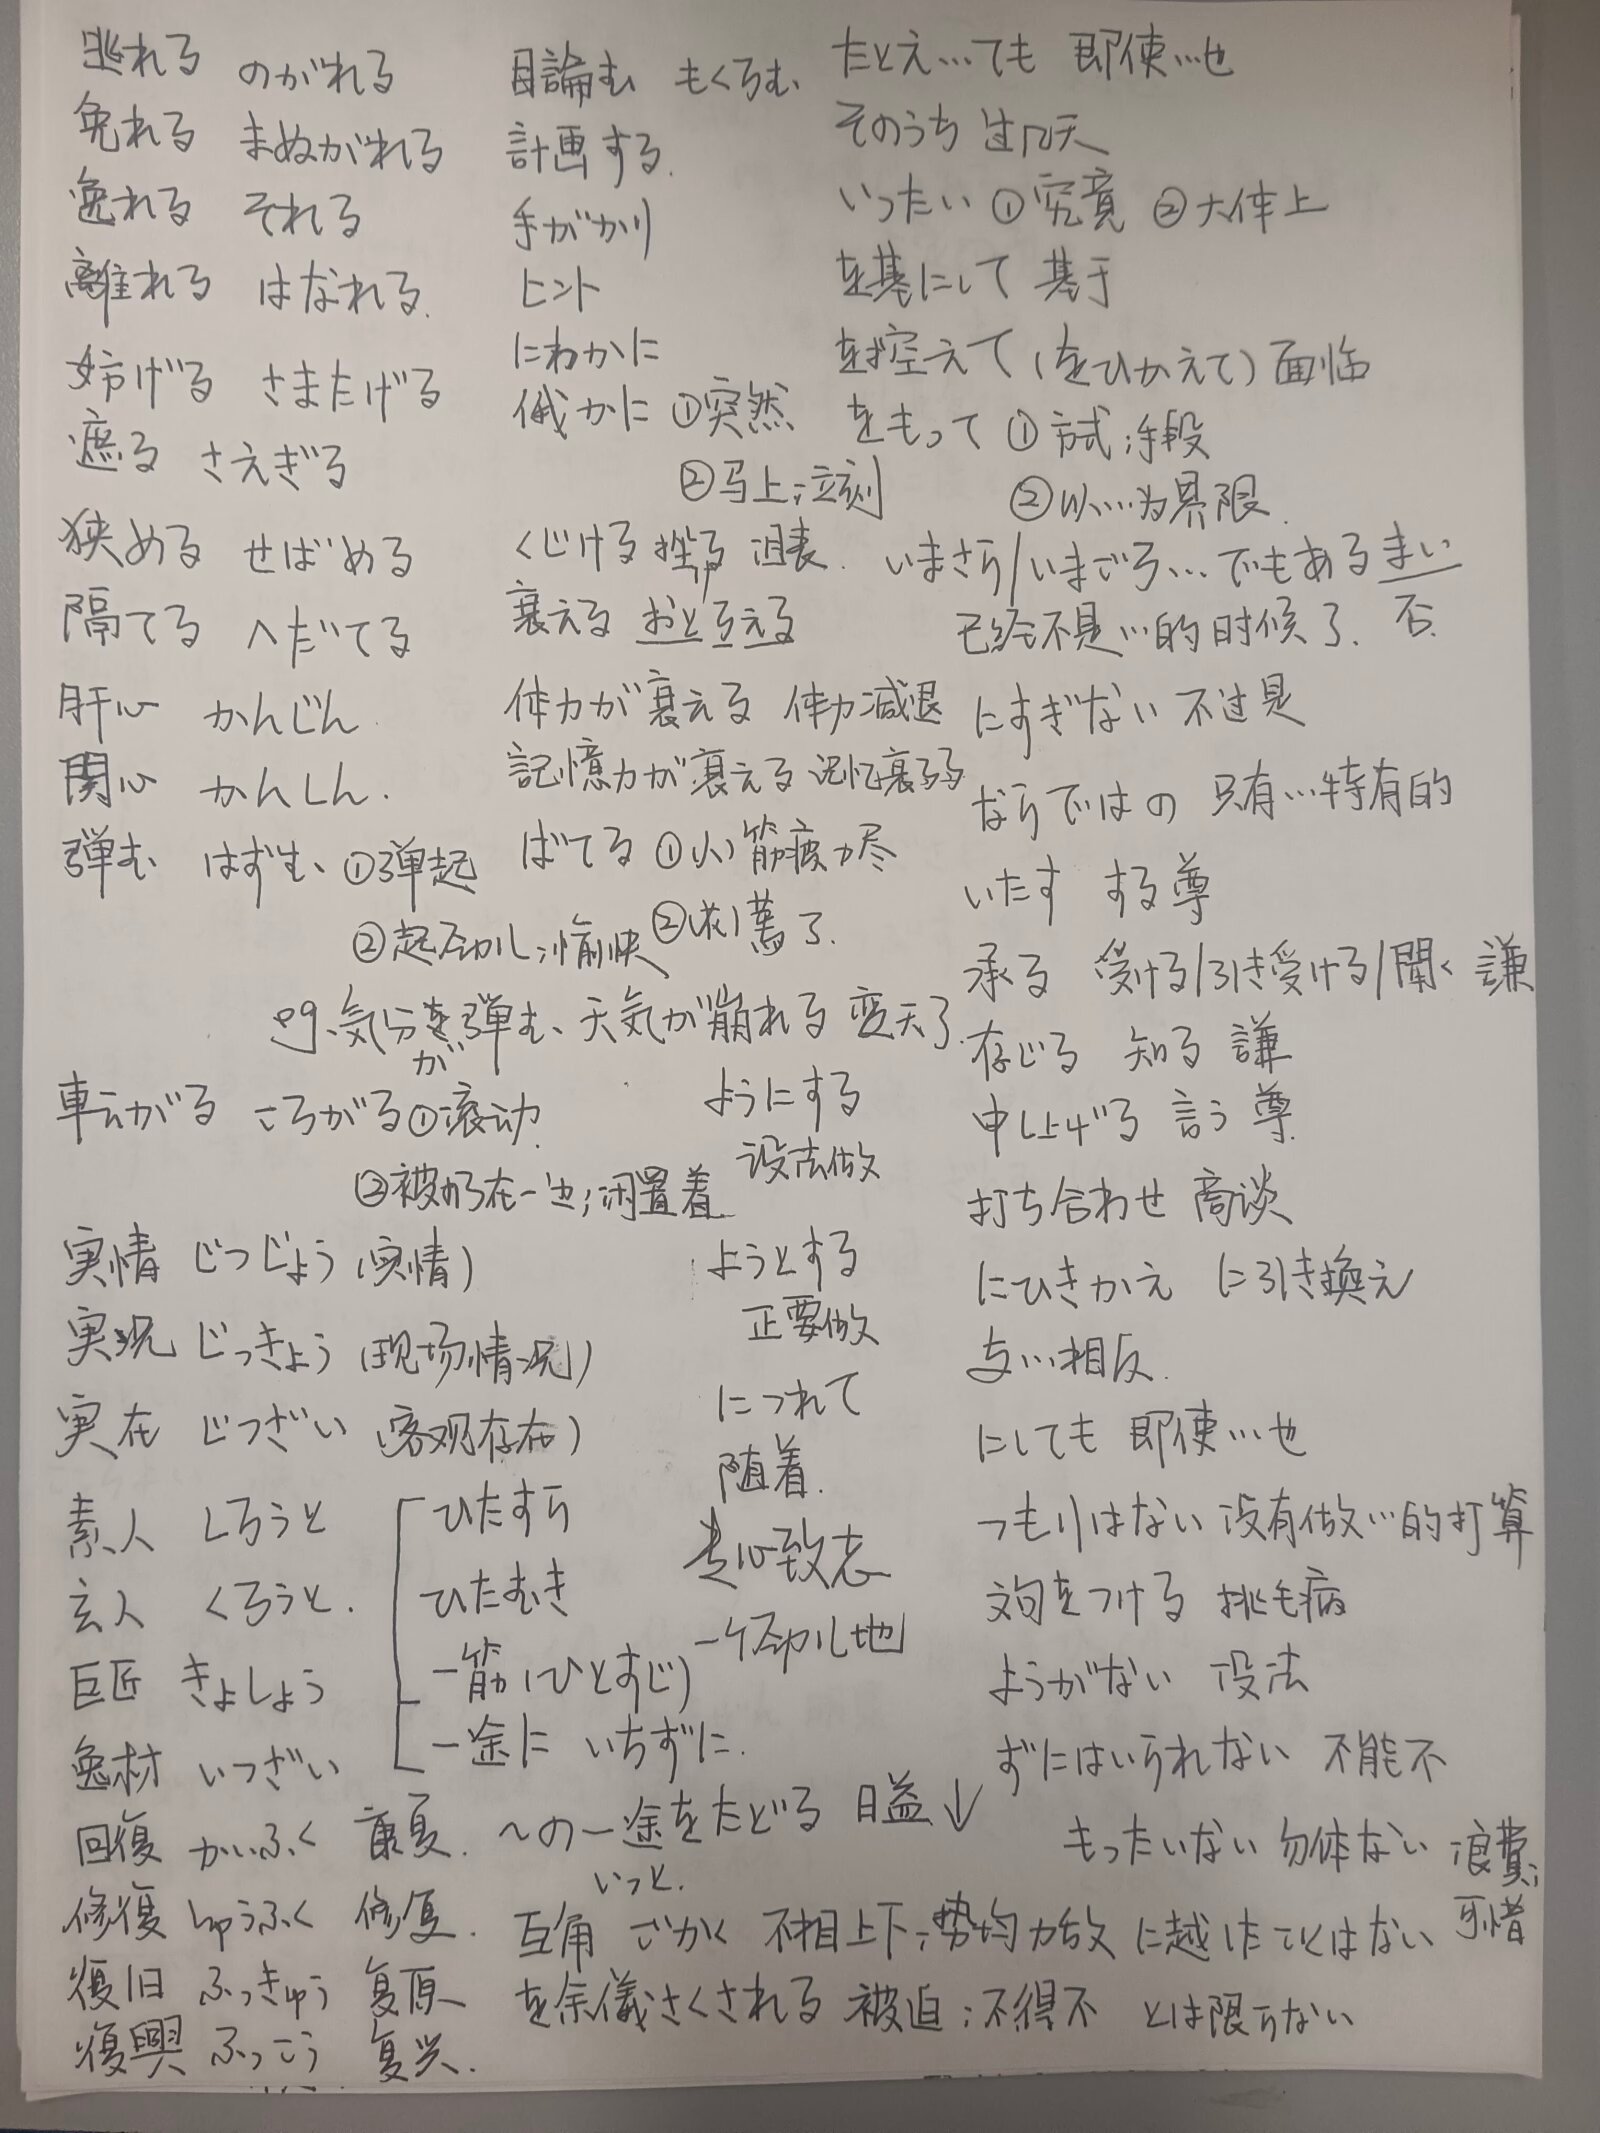 逃れる のがれる
免れる まぬがれる
逸れる それる
離れる はなれる.
妨げる さまたげる
遮る さえぎる
狭める せばめる
隔てる へだてる
肝心 かんじん
関心 かんしん.
弾む はずむ、①弹起
②起劲儿;愉快
气分を弾む、
が
転がる ころがる①滚动.
②被扔在一边;闲置着
実情 じつじょう(实情)
実況 じっきょう(现场情况)
実在 じつざい (客观存在)
素人 しろうと
玄人 くろうと.
巨匠 きょしょう
逸材 いつざい
回復 かいふく 康复.
修復 しゅうふく 修复.
復旧 ふっきゅう 复原
復興 ふっこう 复兴.
目論む もくろむ、
計画する.
手がかり
ヒント
にわかに
俄かに ①突然
②马上;立刻
くじける 挫る 沮丧.
衰える おとろえる
体力が衰える 体力减退
記憶力が衰える 记忆衰弱
ばてる ①(人)筋疲力尽
②(花)蔫了.
天気が崩れる 变天了.
ようにする
设法做
ようとする
正要做
につれて
随着.
ひたすら
ひたむき
一筋(ひとすじ)
一途に いちずに.
专心致志
一个劲儿地
~の一途をたどる 日益↓
いっと.
互角 ごかく 不相上下;势均力敌
を余儀さくされる 被迫;不得不
たとえ…ても 即使…也
そのうち 过几天
いったい ①究竟 ②大体上
を基にして 基于
を控えて(をひかえて)面临
をもって ①方式;手段
②以…为界限.
いまさら/いまごろ…でもあるまい
已经不是…的时候了. 否.
にすぎない 不过是
ならではの 只有…特有的
いたす する 尊
承る 受ける/引き受ける/聞く 謙
存じる 知る 謙
申し上げる 言う 尊.
打ち合わせ 商谈
にひきかえ に引き換え
与…相反.
にしても 即使…也
つもりはない 没有做…的打算
文句をつける 挑毛病
ようがない 没法
ずにはいられない 不能不
もったいない 勿体ない 浪费;
可惜
に越したことはない
とは限らない